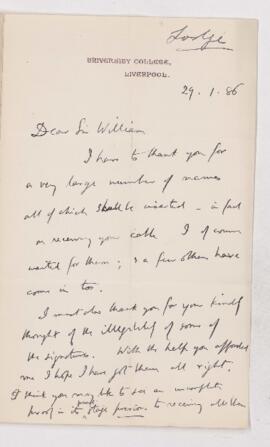 Lodge
UNIVERSITY COLLEGE,
LIVERPOOL.
29.1.86
Dear Sir William
I have to thank you for
a very large number of names
all of which shall be inserted - in fact
on receiving your cable I of course
waited for them; & a few others have
come in too.
I must also thank you for your kindly
thought of the illegibility of some of
the signatures. With the help you afforded
me I hope I have got them all right.
I think you may like to see an
proof in its stage previous to receiving all the